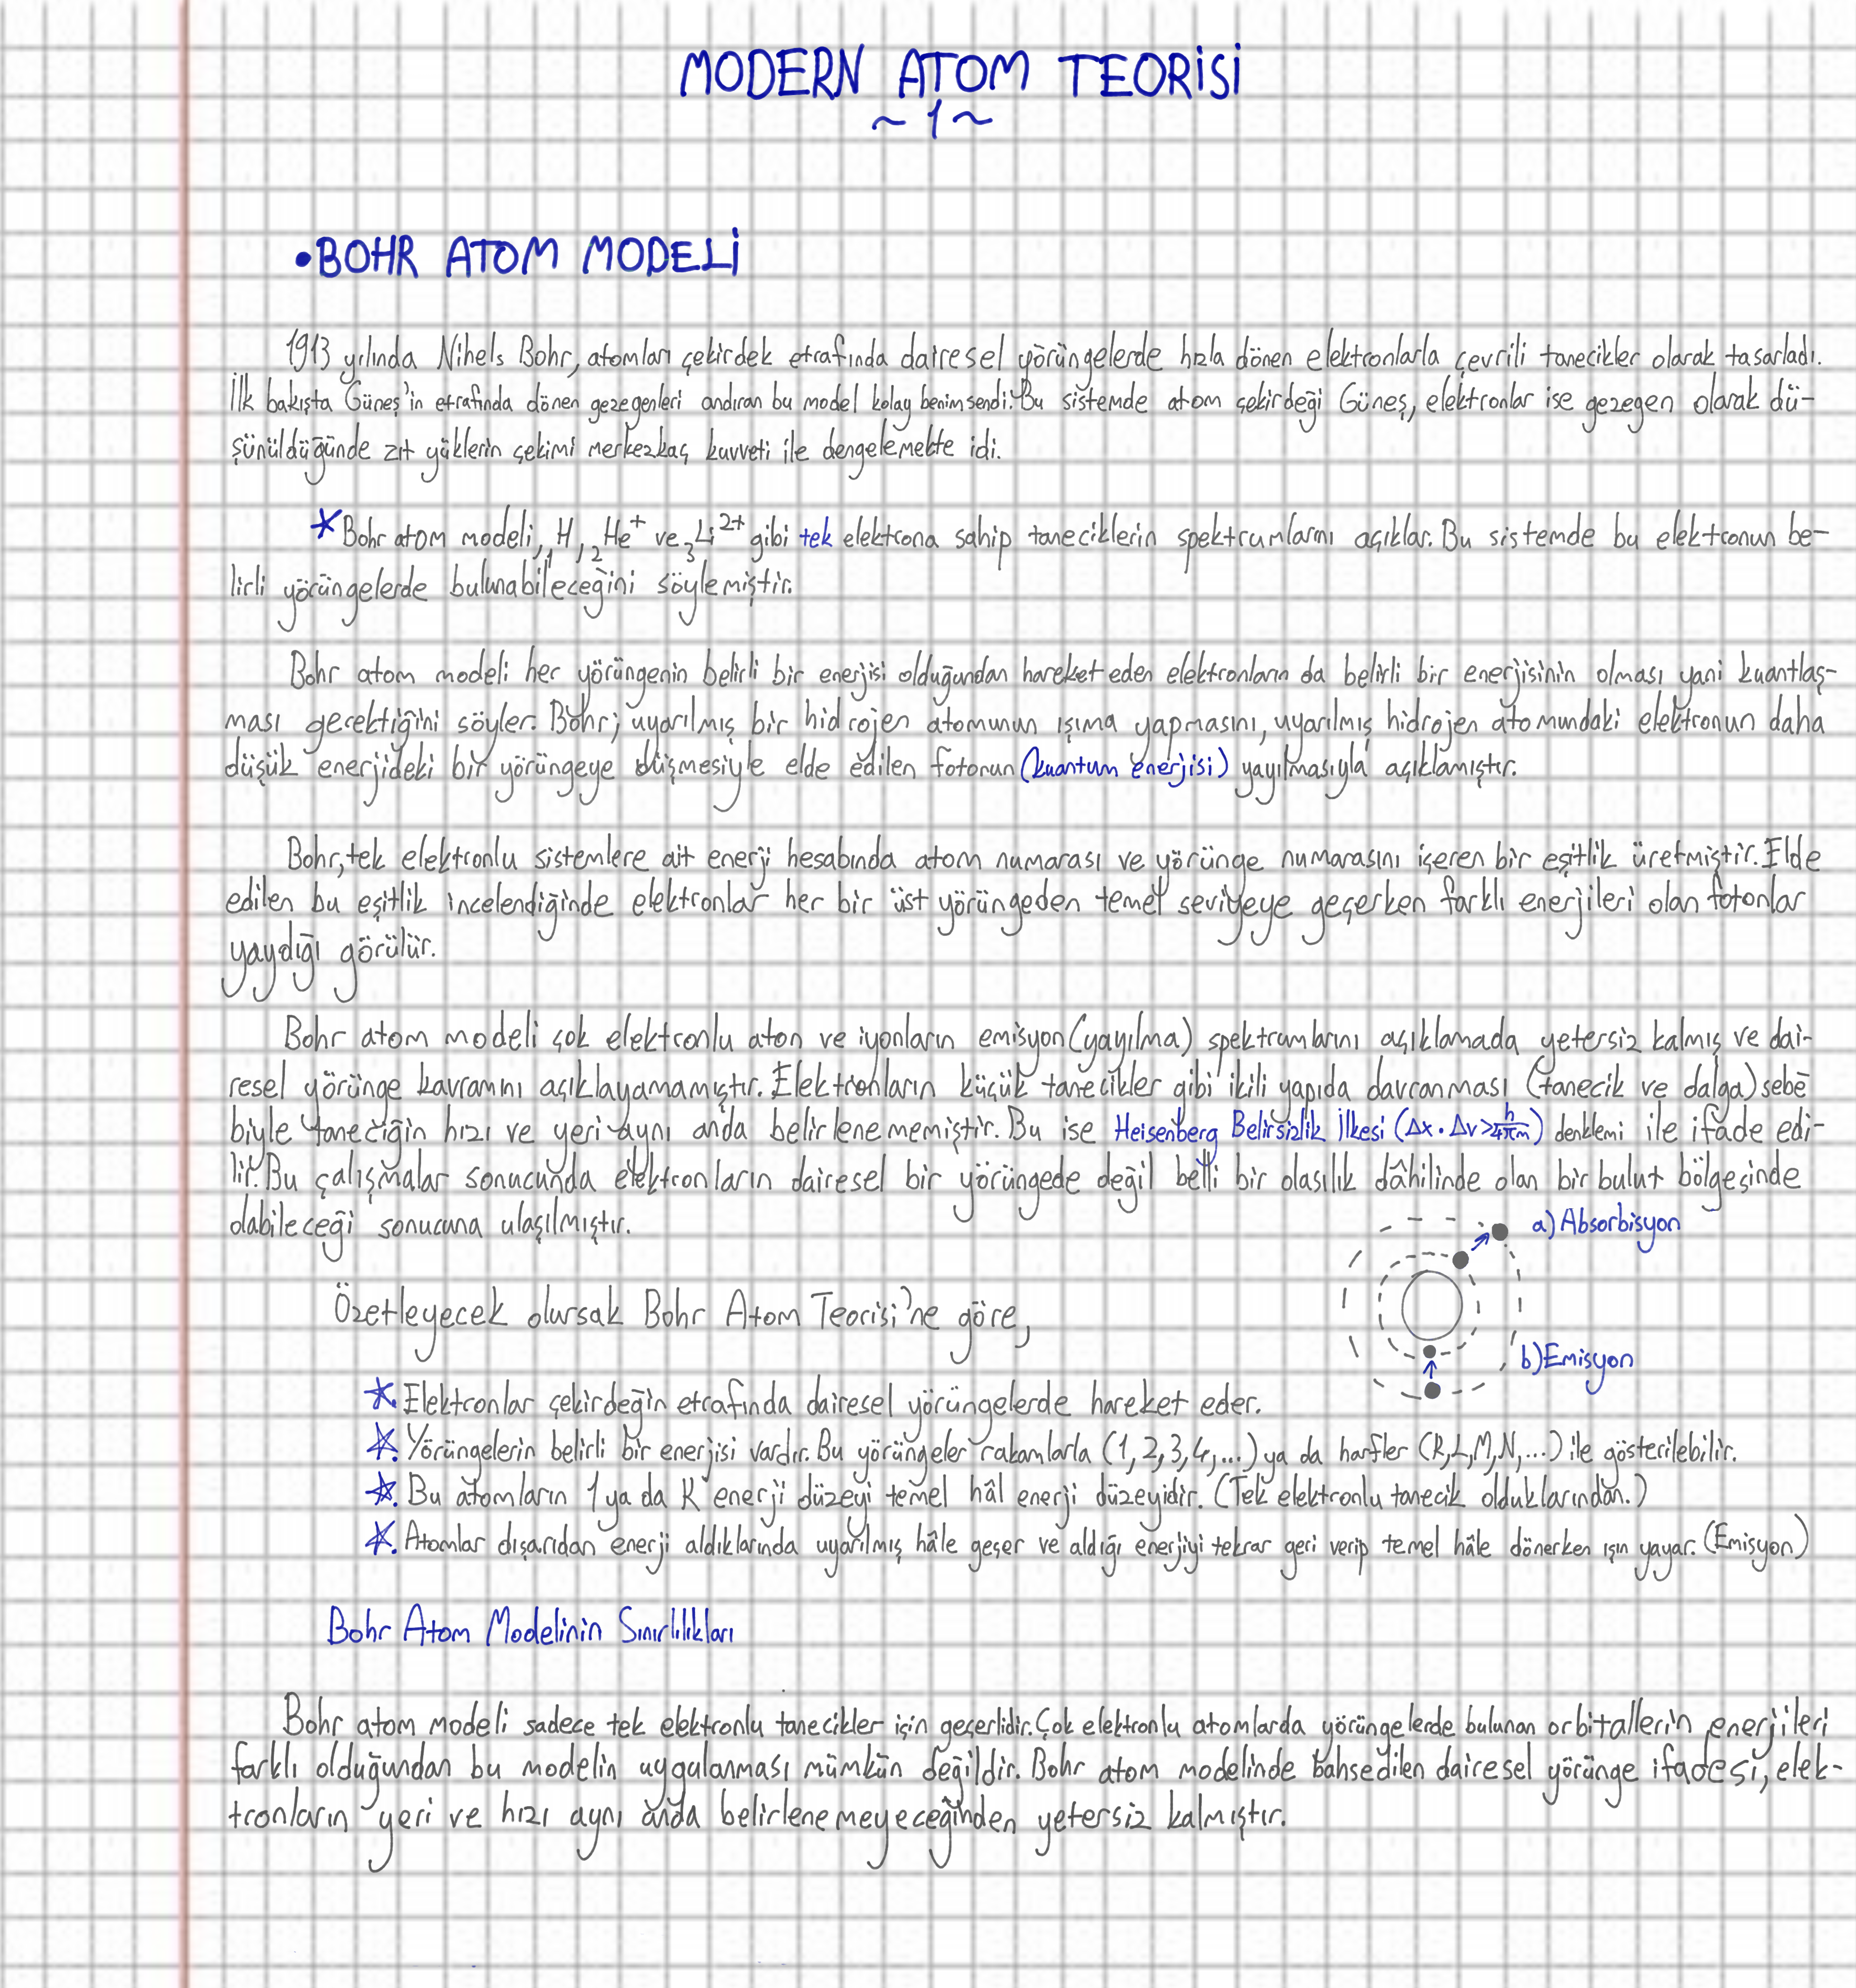 MODERN ATOM TEORİSİ
~ 1 ~
• BOHR ATOM MODELİ
1913 yılında Nihels Bohr, atomları çekirdek etrafında dairesel yörüngelerde hızla dönen elektronlarla çevrili tanecikler olarak tasarladı.
İlk bakışta Güneş'in etrafında dönen gezegenleri andıran bu model kolay benimsendi. Bu sistemde atom çekirdeği Güneş, elektronlar ise gezegen olarak dü-
şünüldüğünde zıt yüklerin çekimi merkezkaç kuvveti ile dengelemekte idi.
* Bohr atom modeli, ₁H, ₂He⁺ ve ₃Li²⁺ gibi tek elektrona sahip taneciklerin spektrumlarını açıklar. Bu sistemde bu elektronun be-
lirli yörüngelerde bulunabileceğini söylemiştir.
Bohr atom modeli her yörüngenin belirli bir enerjisi olduğundan hareket eden elektronların da belirli bir enerjisinin olması yani kuantlaş-
ması gerektiğini söyler. Bohr; uyarılmış bir hidrojen atomunun ışıma yapmasını, uyarılmış hidrojen atomundaki elektronun daha
düşük enerjideki bir yörüngeye düşmesiyle elde edilen fotonun (kuantum enerjisi) yayılmasıyla açıklamıştır.
Bohr, tek elektronlu sistemlere ait enerji hesabında atom numarası ve yörünge numarasını içeren bir eşitlik üretmiştir. Elde
edilen bu eşitlik incelendiğinde elektronlar her bir üst yörüngeden temel seviyeye geçerken farklı enerjileri olan fotonlar
yaydığı görülür.
Bohr atom modeli çok elektronlu aton ve iyonların emisyon (yayılma) spektrumlarını açıklamada yetersiz kalmış ve dai-
resel yörünge kavramını açıklayamamıştır. Elektronların küçük tanecikler gibi ikili yapıda davranması (tanecik ve dalga) sebe-
biyle taneciğin hızı ve yeri aynı anda belirlenememiştir. Bu ise Heisenberg Belirsizlik İlkesi (Δx · Δv > h/4πm) denklemi ile ifade edi-
lir. Bu çalışmalar sonucunda elektronların dairesel bir yörüngede değil belli bir olasılık dâhilinde olan bir bulut bölgesinde
olabileceği sonucuna ulaşılmıştır.
a) Absorbisyon
Özetleyecek olursak Bohr Atom Teorisi'ne göre,
b) Emisyon
*. Elektronlar çekirdeğin etrafında dairesel yörüngelerde hareket eder.
*. Yörüngelerin belirli bir enerjisi vardır. Bu yörüngeler rakamlarla (1, 2, 3, 4, ...) ya da harfler (K, L, M, N, ...) ile gösterilebilir.
*. Bu atomların 1 ya da K enerji düzeyi temel hâl enerji düzeyidir. (Tek elektronlu tanecik olduklarından.)
*. Atomlar dışarıdan enerji aldıklarında uyarılmış hâle geçer ve aldığı enerjiyi tekrar geri verip temel hâle dönerken ışın yayar. (Emisyon)
Bohr Atom Modelinin Sınırlılıkları
Bohr atom modeli sadece tek elektronlu tanecikler için geçerlidir. Çok elektronlu atomlarda yörüngelerde bulunan orbitallerin enerjileri
farklı olduğundan bu modelin uygulanması mümkün değildir. Bohr atom modelinde bahsedilen dairesel yörünge ifadesi, elek-
tronların yeri ve hızı aynı anda belirlenemeyeceğinden yetersiz kalmıştır.